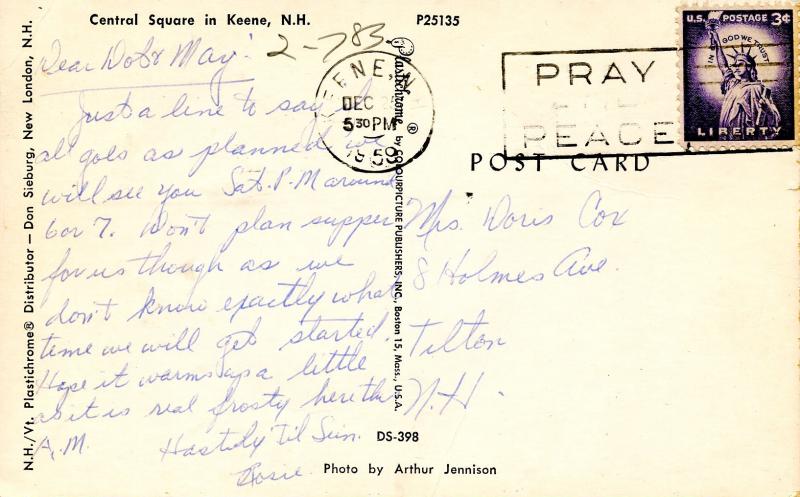 Central Square in Keene, N.H.
P25135
2-783
U.S. POSTAGE 3¢
IN GOD WE TRUST
LIBERTY
KEENE, N.H.
DEC
5 30 PM
1959
PRAY
FOR
PEACE
POST CARD
Dear Dot & May:
Just a line to say
all goes as planned we
will see you Sat. P.M around
6 or 7. Don't plan supper
for us though as we
don't know exactly what
time we will get started.
Hope it warms up a little
as it is real frosty here this
A.M.
Hastily 'Til Seein.
Rosie
Mrs. Doris Cox
8 Holmes Ave.
Tilton
N.H.
DS-398
Photo by Arthur Jennison
N.H./Vt. Plastichrome® Distributor — Don Sieburg, New London, N.H.
Plastichrome ® by COLOURPICTURE PUBLISHERS, INC., Boston 15, Mass., U.S.A.